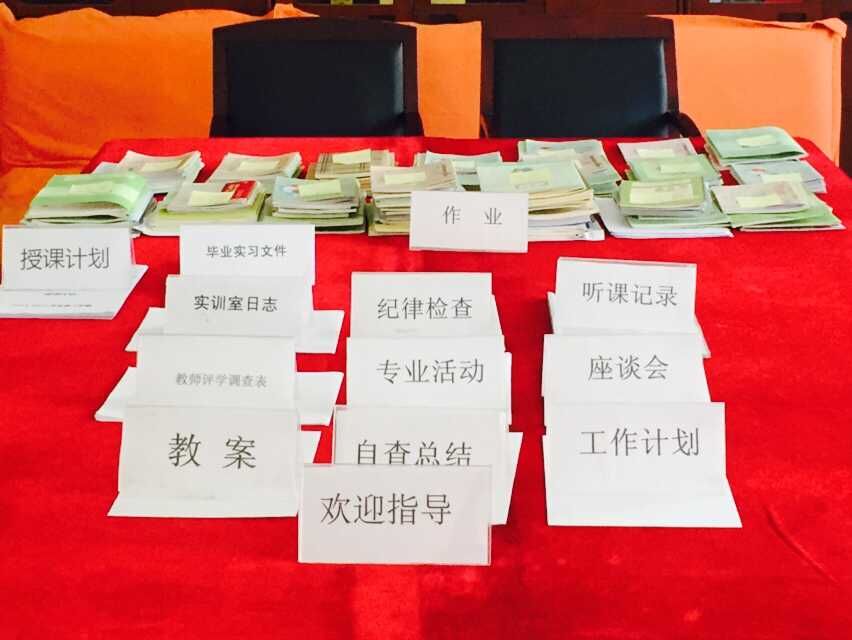 作 业
授课计划
毕业实习文件
实训室日志
纪律检查
听课记录
教师评学调查表
专业活动
座谈会
教 案
自查总结
工作计划
欢迎指导